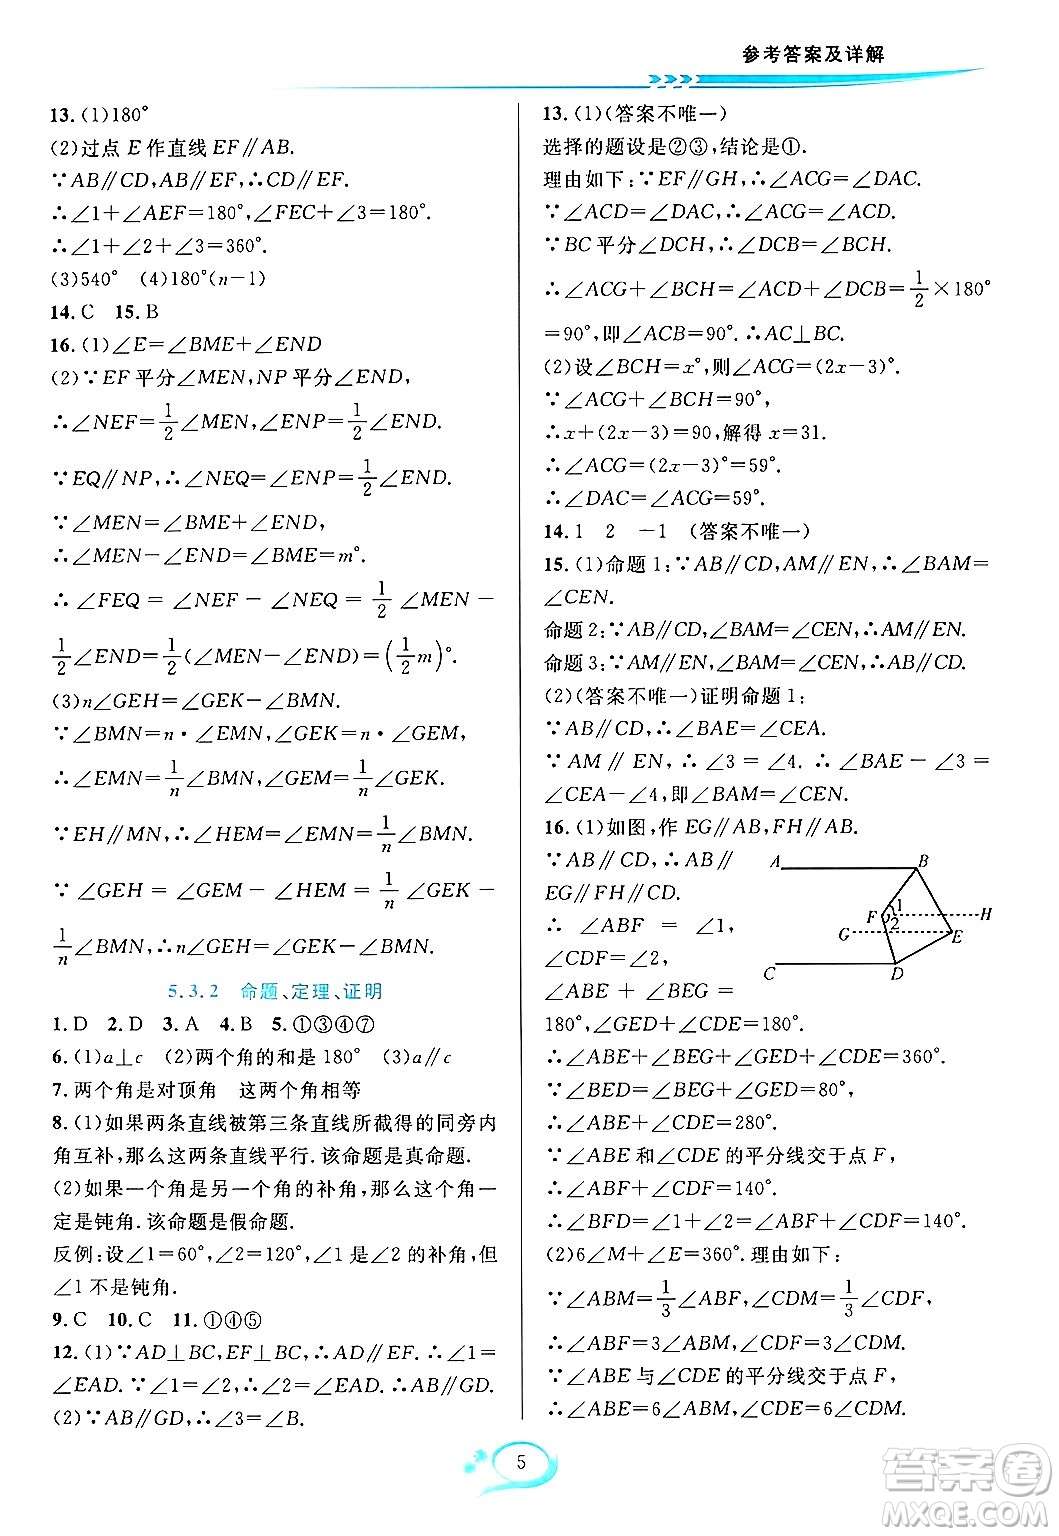 参考答案及详解
13. (1)180°
(2)过点 E 作直线 EF∥AB.
∵AB∥CD,AB∥EF,∴CD∥EF.
∴∠1+∠AEF=180°,∠FEC+∠3=180°.
∴∠1+∠2+∠3=360°.
(3)540° (4)180°(n-1)
14. C 15. B
16. (1)∠E=∠BME+∠END
(2)∵EF 平分∠MEN,NP 平分∠END,
∴∠NEF=1/2∠MEN,∠ENP=1/2∠END.
∵EQ∥NP,∴∠NEQ=∠ENP=1/2∠END.
∵∠MEN=∠BME+∠END,
∴∠MEN-∠END=∠BME=m°.
∴∠FEQ = ∠NEF - ∠NEQ = 1/2 ∠MEN -
1/2∠END=1/2(∠MEN-∠END)=(1/2m)°.
(3)n∠GEH=∠GEK-∠BMN.
∵∠BMN=n·∠EMN,∠GEK=n·∠GEM,
∴∠EMN=1/n∠BMN,∠GEM=1/n∠GEK.
∵EH∥MN,∴∠HEM=∠EMN=1/n∠BMN.
∵ ∠GEH = ∠GEM - ∠HEM = 1/n ∠GEK -
1/n∠BMN,∴n∠GEH=∠GEK-∠BMN.
5.3.2 命题、定理、证明
1. D 2. D 3. A 4. B 5. ①③④⑦
6. (1)a⊥c (2)两个角的和是 180° (3)a∥c
7. 两个角是对顶角 这两个角相等
8. (1)如果两条直线被第三条直线所截得的同旁内
角互补,那么这两条直线平行.该命题是真命题.
(2)如果一个角是另一个角的补角,那么这个角一
定是钝角.该命题是假命题.
反例:设∠1=60°,∠2=120°,∠1 是∠2 的补角,但
∠1 不是钝角.
9. C 10. C 11. ①④⑤
12. (1)∵AD⊥BC,EF⊥BC,∴AD∥EF.∴∠1=
∠EAD.∵∠1=∠2,∴∠2=∠EAD.∴AB∥GD.
(2)∵AB∥GD,∴∠3=∠B.
13. (1)(答案不唯一)
选择的题设是②③,结论是①.
理由如下:∵EF∥GH,∴∠ACG=∠DAC.
∵∠ACD=∠DAC,∴∠ACG=∠ACD.
∵BC 平分∠DCH,∴∠DCB=∠BCH.
∴∠ACG+∠BCH=∠ACD+∠DCB=1/2×180°
=90°,即∠ACB=90°.∴AC⊥BC.
(2)设∠BCH=x°,则∠ACG=(2x-3)°.
∵∠ACG+∠BCH=90°,
∴x+(2x-3)=90,解得 x=31.
∴∠ACG=(2x-3)°=59°.
∴∠DAC=∠ACG=59°.
14. 1 2 -1 (答案不唯一)
15. (1)命题 1:∵AB∥CD,AM∥EN,∴∠BAM=
∠CEN.
命题 2:∵AB∥CD,∠BAM=∠CEN,∴AM∥EN.
命题 3:∵AM∥EN,∠BAM=∠CEN,∴AB∥CD.
(2)(答案不唯一)证明命题 1:
∵AB∥CD,∴∠BAE=∠CEA.
∵AM ∥ EN,∴∠3 = ∠4.∴∠BAE - ∠3 =
∠CEA-∠4,即∠BAM=∠CEN.
16. (1)如图,作 EG∥AB,FH∥AB.
∵AB∥CD,∴AB∥
EG∥FH∥CD.
∴ ∠ABF = ∠1,
∠CDF=∠2,
∴ ∠ABE + ∠BEG =
A B
F 1 H
2
G E
C D
180°,∠GED+∠CDE=180°.
∴∠ABE+∠BEG+∠GED+∠CDE=360°.
∵∠BED=∠BEG+∠GED=80°,
∴∠ABE+∠CDE=280°.
∵∠ABE 和∠CDE 的平分线交于点 F,
∴∠ABF+∠CDF=140°.
∴∠BFD=∠1+∠2=∠ABF+∠CDF=140°.
(2)6∠M+∠E=360°.理由如下:
∵∠ABM=1/3∠ABF,∠CDM=1/3∠CDF,
∴∠ABF=3∠ABM,∠CDF=3∠CDM.
∵∠ABE 与∠CDE 的平分线交于点 F,
∴∠ABE=6∠ABM,∠CDE=6∠CDM.
5
答案圈
MXQE.COM